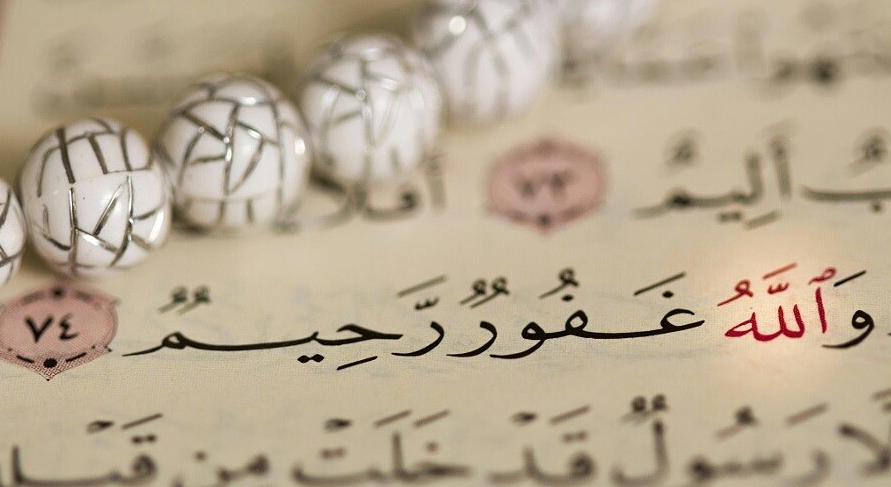 ـبٌ أَلِيمٌ ٧٣ أَفَلَا
وَٱللَّهُ غَفُورٌ رَّحِيمٌ ٧٤
إِلَّا رَسُولٌ قَدْ خَلَتْ مِن قَبْلِ